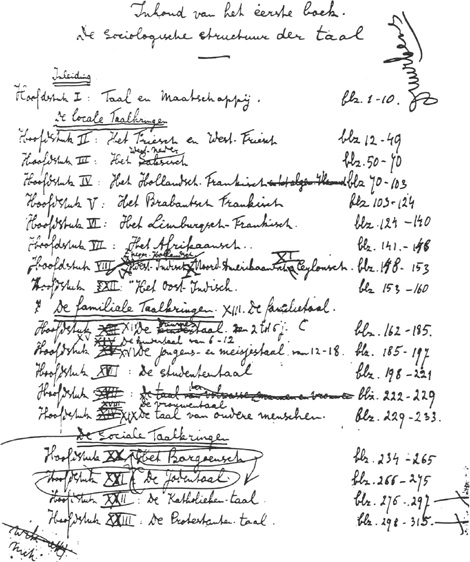 Inhoud van het eerste boek.
De sociologische structuur der taal
Inleiding
Hoofdstuk I : Taal en Maatschappij. blz. 1-10.
De locale Taalkringen
Hoofdstuk II : Het Friesch en West-Friesch blz. 12-49
Hoofdstuk III : Het Saksisch blz. 50-70
Hoofdstuk IV : Het Hollandsch-Frankisch blz 70-103
Hoofdstuk V : Het Brabantsch Frankisch blz 103-124
Hoofdstuk VI : Het Limburgsch-Frankisch. blz. 124-140
Hoofdstuk VII : Het Afrikaansch. blz. 141.-148
Hoofdstuk VIII Ceylonsch. XI blz. 148-153
Hoofdstuk XII : Het Oost-Indisch. blz 153-160
De familiale Taalkringen. XIII. De familietaal.
Hoofdstuk De taal. van 2 tot 6 j. blz. 162-185.
XV De kindertaal van 6-12
Hoofdstuk XVI De jongens- en meisjestaal. van 12-18. blz. 185-197
Hoofdstuk XVII : De studententaal blz. 198-221
Hoofdstuk blz. 222-229
XVIII De vrouwentaal
Hoofdstuk XIX De taal van oudere menschen. blz. 229-233.
De Sociale Taalkringen
Hoofdstuk XX : Het Bargoensch blz. 234-265
Hoofdstuk XXI : De Jodentaal blz. 266-275
Hoofdstuk XXII : De Katholieken-taal blz. 276-297
Hoofdstuk XXIII : De Protestanten-taal. blz. 298-315